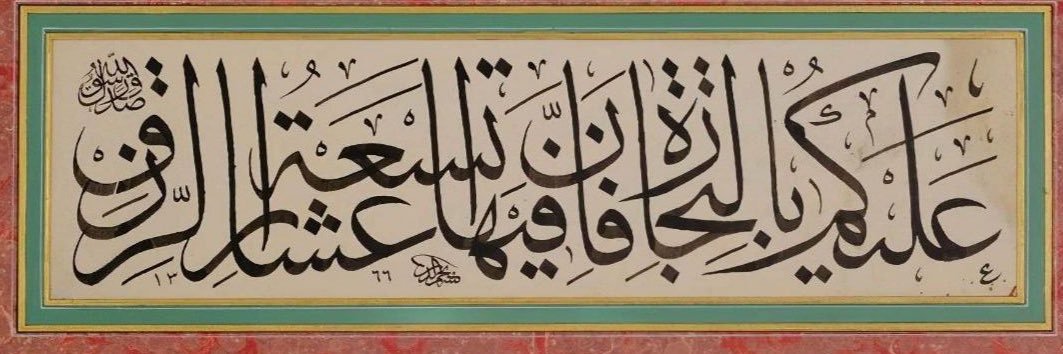 عَلَيْكُمْ بِالتِّجَارَةِ فَاِنَّ فِيهَا تِسْعَةُ اَعْشَارِ الرِّزْقِ
صدق رسول الله
١٣ ٦٦